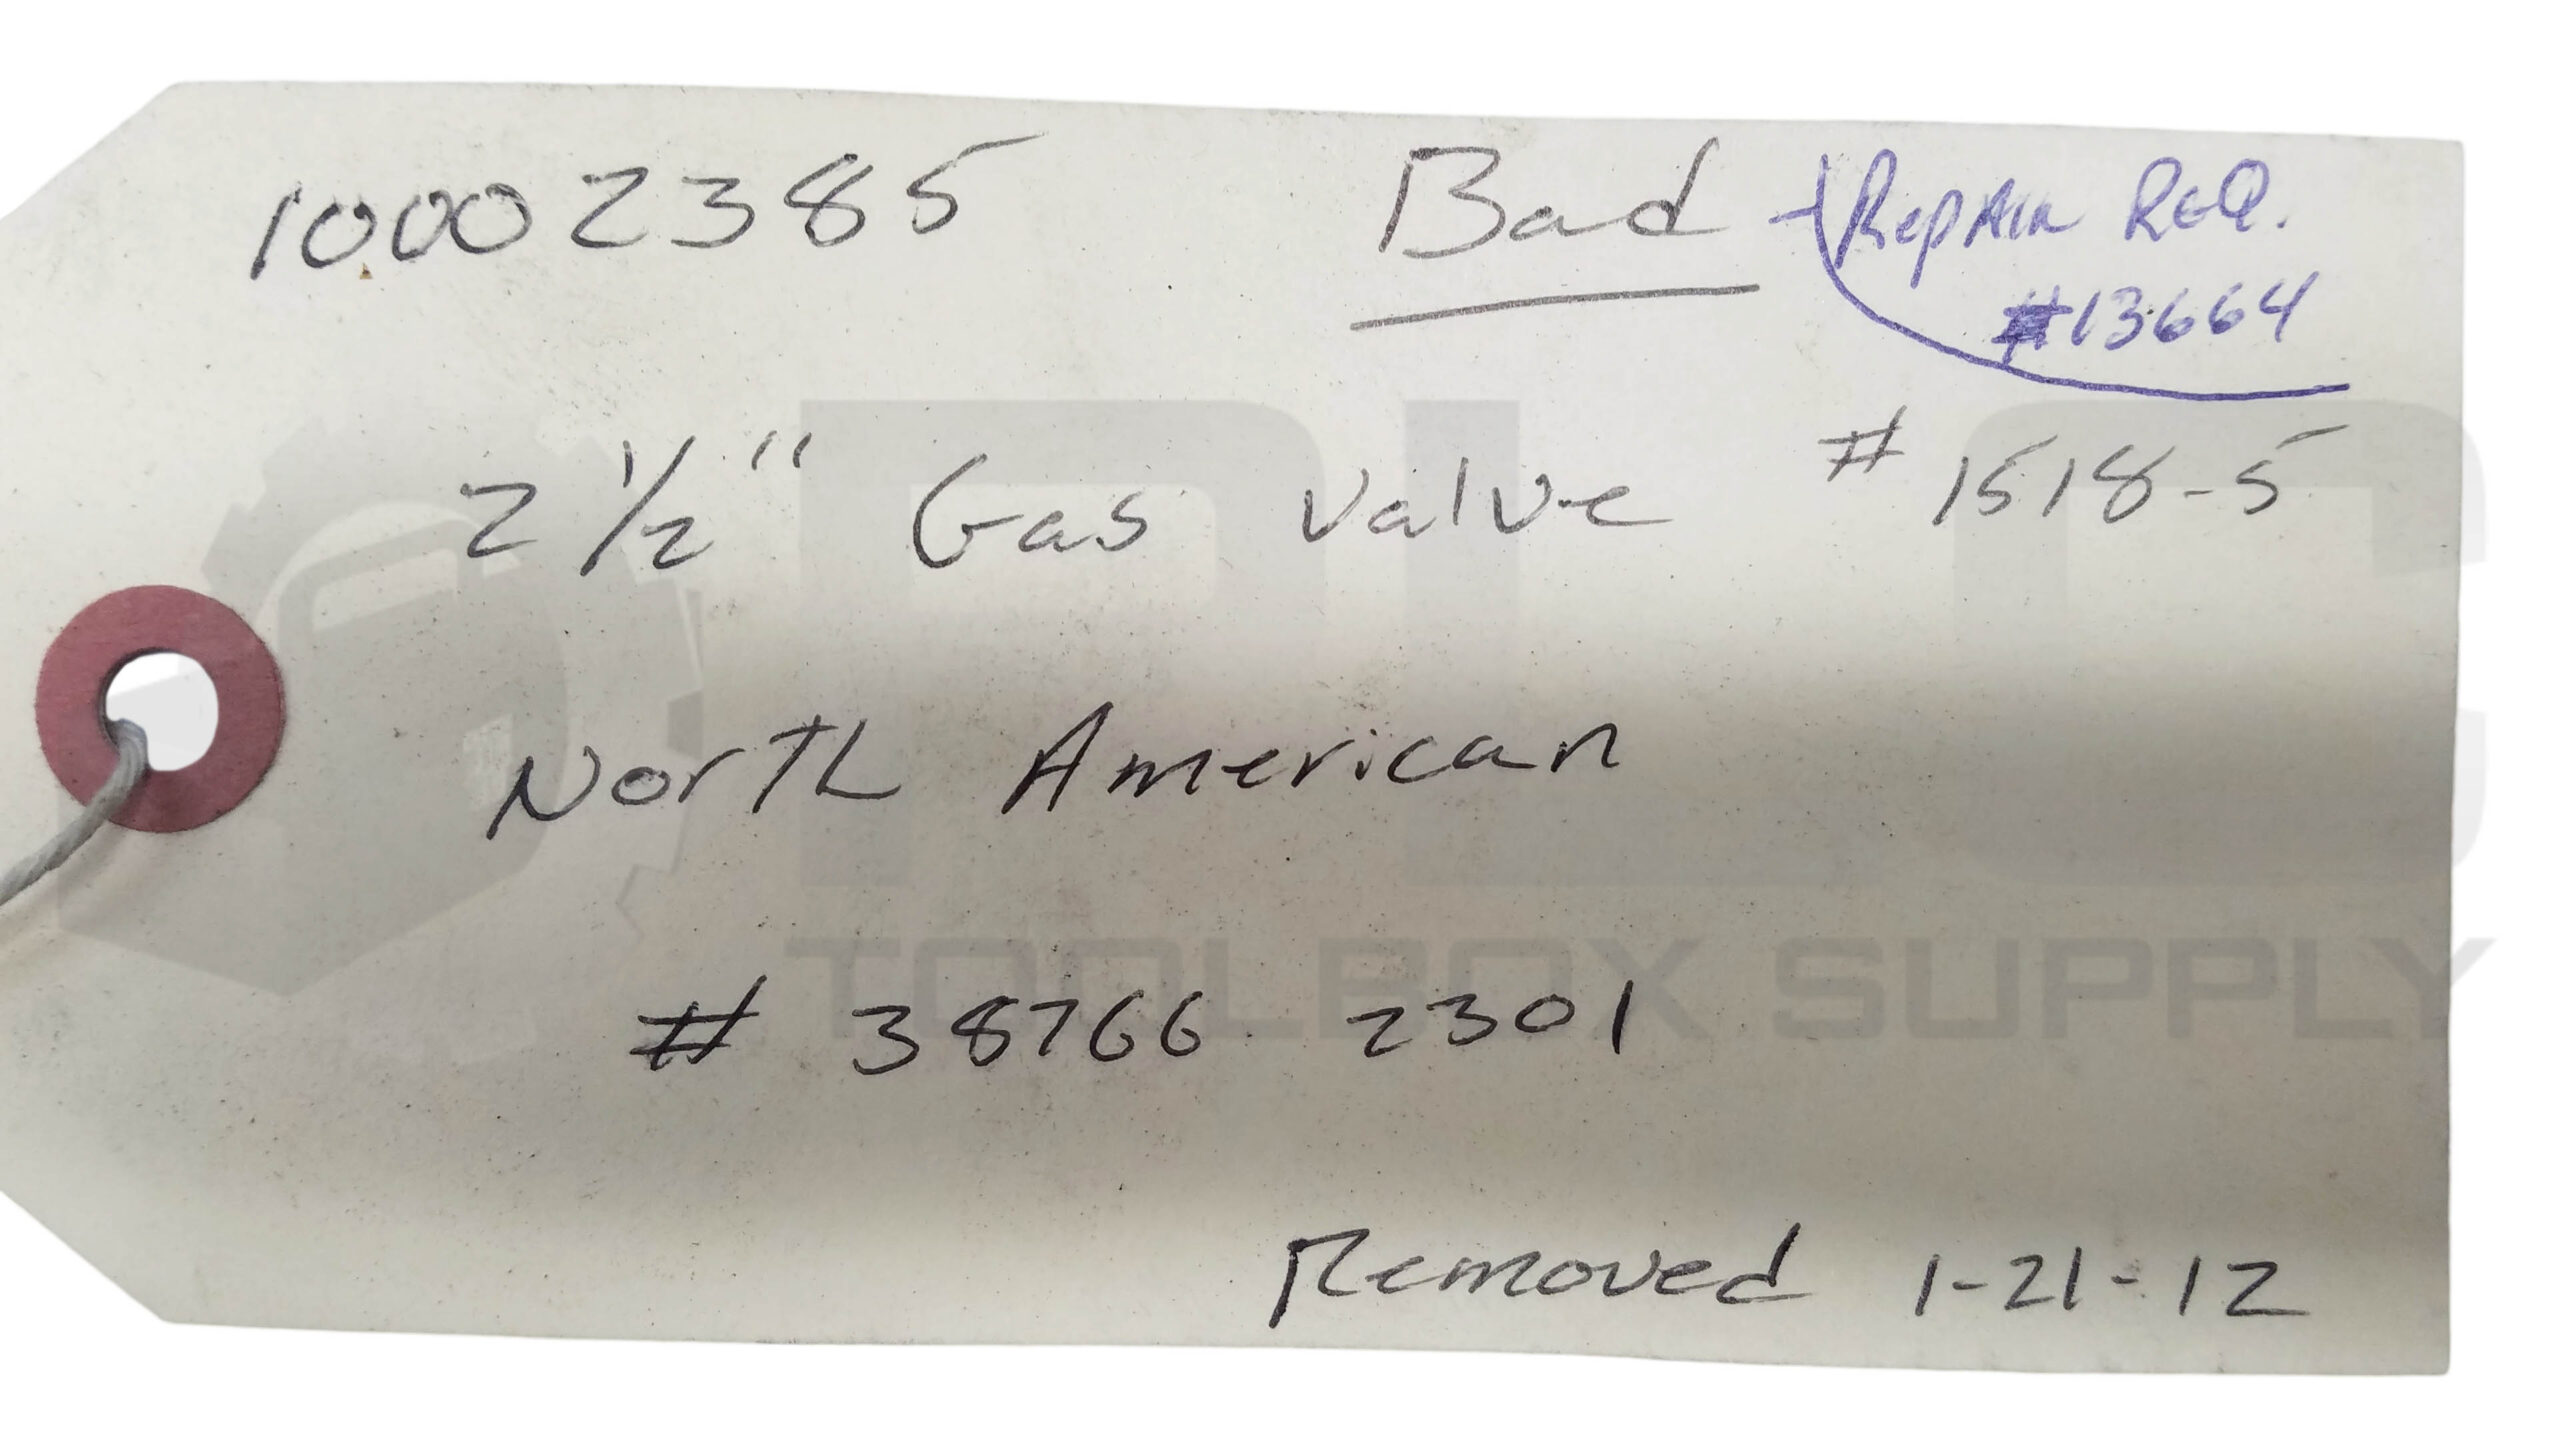 10002385 Bad - Repair Req.
#13664
2 1/2" Gas valve # 1518-5
North American
# 38766 2301
Removed 1-21-12
PLC
TOOLBOX SUPPLY